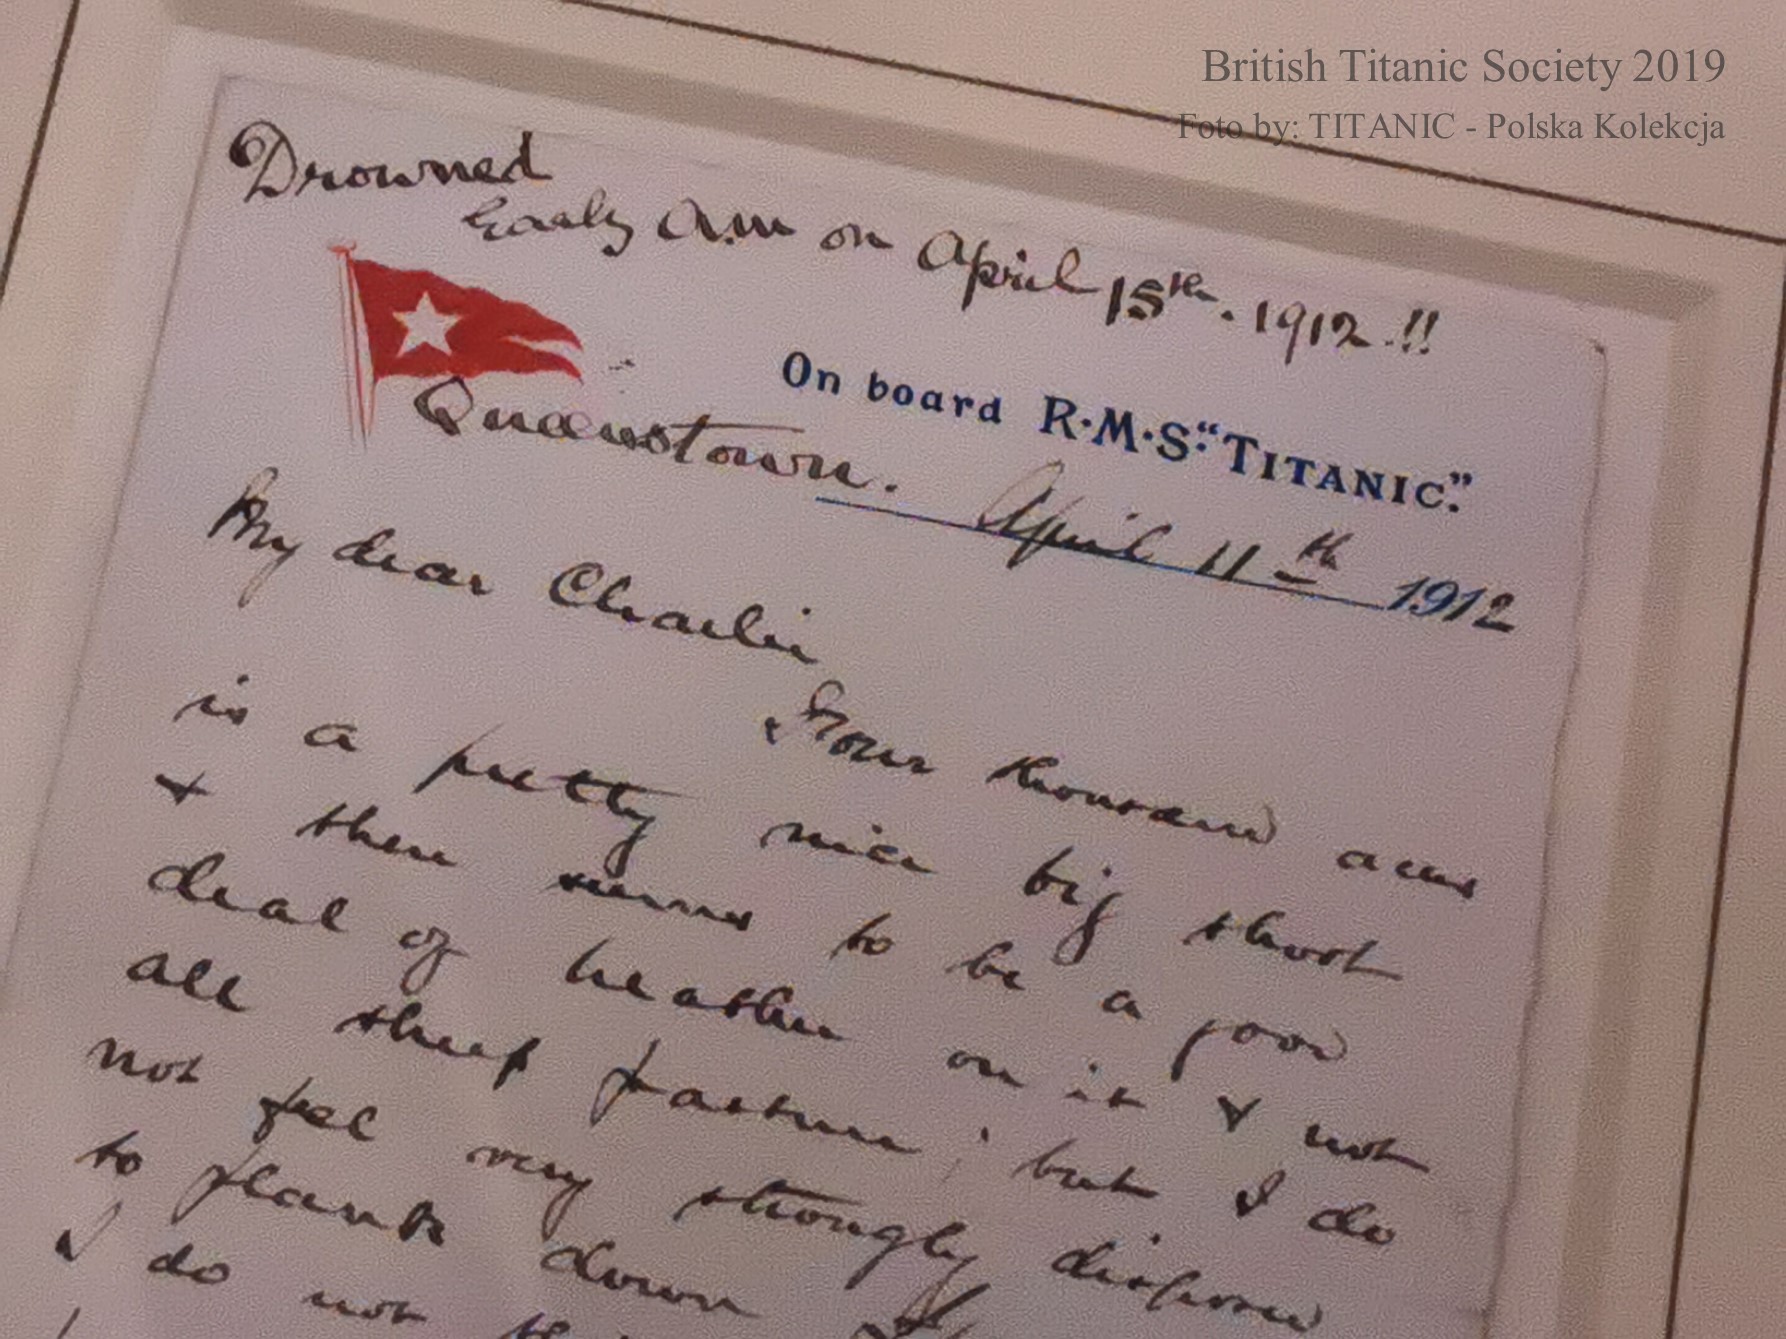 British Titanic Society 2019
Foto by: TITANIC - Polska Kolekcja
Drowned
Early A.M on April 15th. 1912.!!
On board R.M.S. "TITANIC."
Queenstown. April 11th 1912
My dear Charlie
Four thousand acres
is a pretty nice big shoot
& there seems to be a good
deal of heather on it & not
all sheep pasture; but I do
not feel very strongly disposed
to plank down
I do not